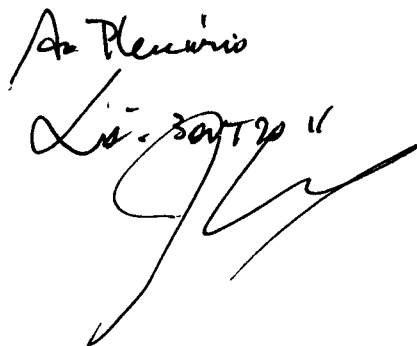 Ao Plenário
Lis. 3 OUT 2011